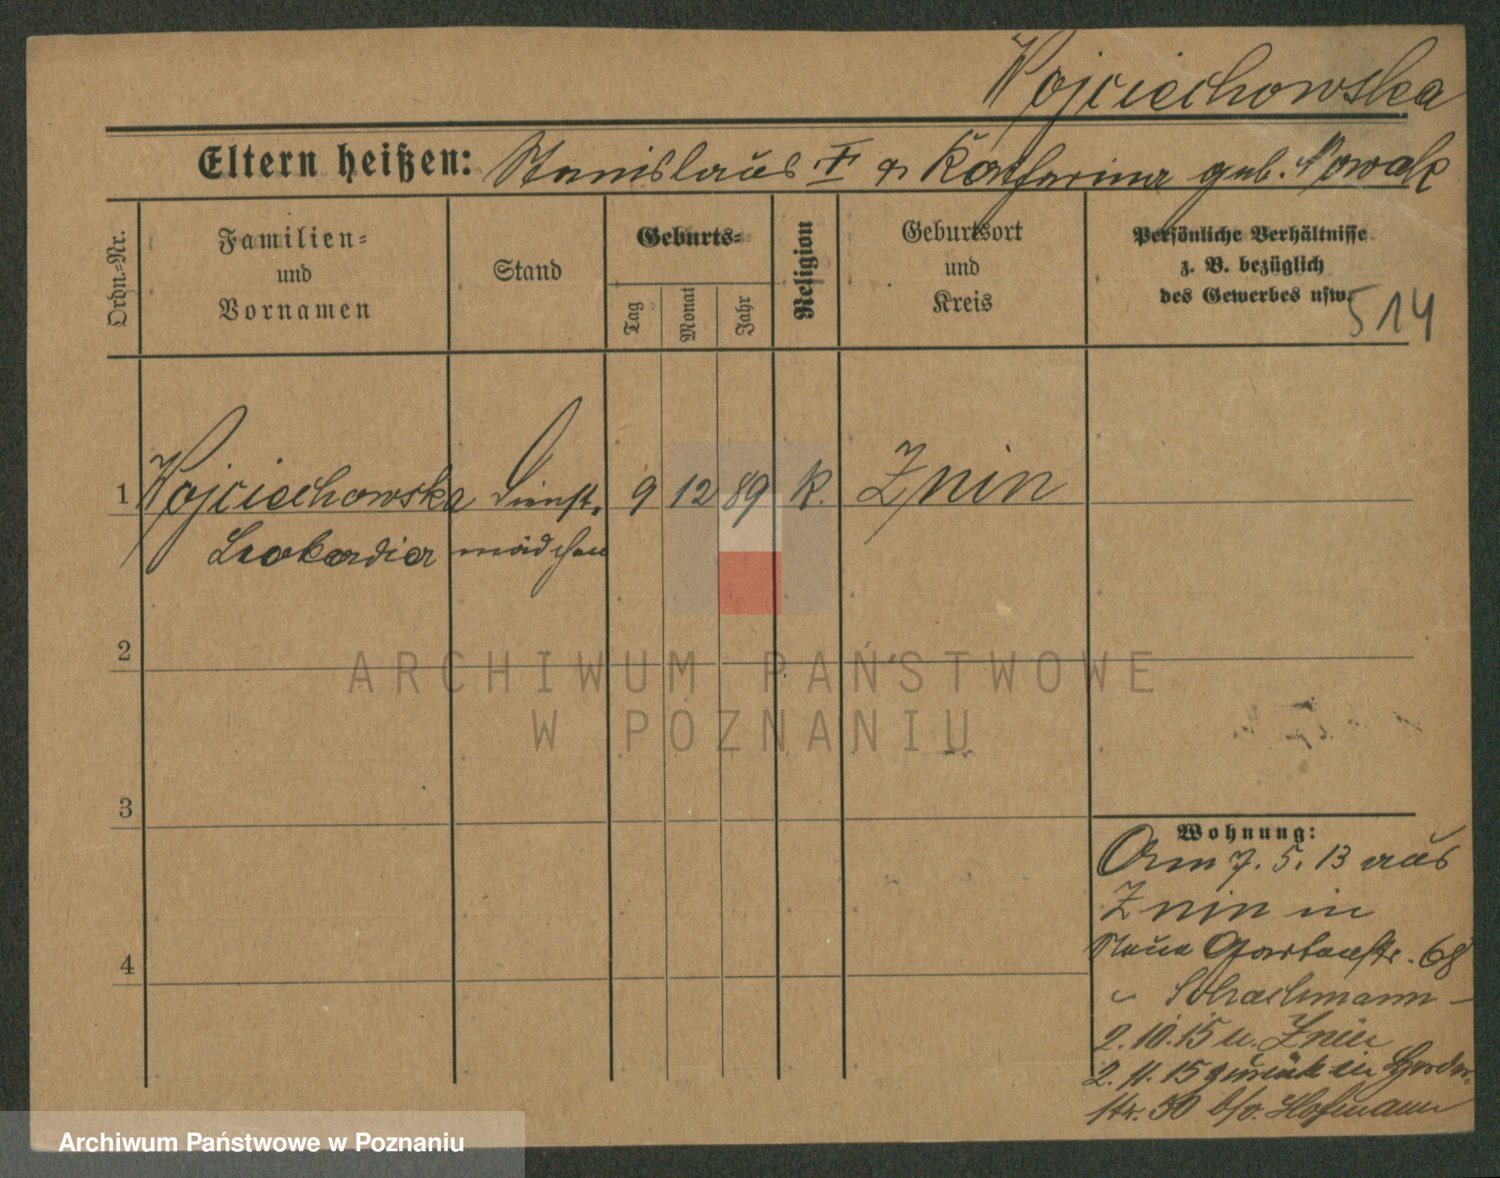 Wojciechowska
Eltern heißen: Stanislaus † u Katharina geb. Nowak
Ordn.-Nr.
Familien-
und
Vornamen
Stand
Geburts-
Tag
Monat
Jahr
Religion
Geburtsort
und
Kreis
Persönliche Verhältnisse
z. B. bezüglich
des Gewerbes usw.
514
1 Wojciechowska Dienst- 9 12 89 k. Znin
Leokardia mädchen
2
ARCHIWUM PAŃSTWOWE
W POZNANIU
3
Wohnung:
Am 7. 5. 13 aus
Znin in
Neue Gartenstr. 68
Schachmann
2. 10. 15 n. Znin
2. 11. 15 zurück in
str. 50 b/o. Hofmann
4
Archiwum Państwowe w Poznaniu